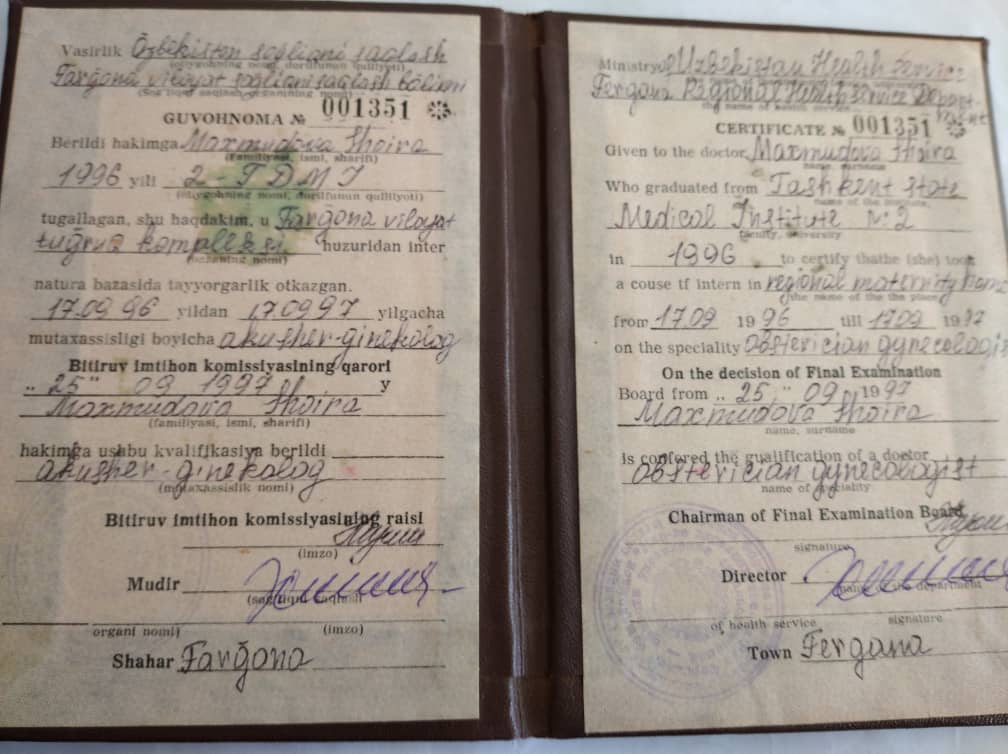 Vasirlik Ozbēkiston sogliqni saqlash
Farğona viloyat sogliqni saqlash bōlimi
GUVOHNOMA № 001351
Berildi hakimga Maxmudova Shoira
(Familiyasi, ismi, sharifi)
1996 yili 2-TDMI
(oliygohning nomi, dorilfunun qulliyoti)
tugallagan, shu haqdakim, u Farğona viloyat
tuğruq kompleksi huzuridan inter
(bazaning nomi)
natura bazasida tayyorgarlik otkazgan.
17.09 96 yildan 17.09 97 yilgacha
mutaxassisligi boyicha akusher-ginekolog
Bitiruv imtihon komissiyasining qarori
„ 25 " 09 1997 y
Maxmudova Shoira
(familiyasi, ismi, sharifi)
hakimga ushbu kvalifikasiya berildi
akusher-ginekolog
(mutaxassislik nomi)
Bitiruv imtihon komissiyasining raisi
(imzo)
Mudir
(sogliqni saqlash
organi nomi) (imzo)
Shahar Farğona
Ministry of Uzbekistan Health Service
Fergana Regional Health service Depart-
ment
CERTIFICATE № 001351
Given to the doctor Maxmudova Shoira
name, surname
Who graduated from Tashkent State
name of the institute,
Medical Institute N:2
faculty, university
in 1996 to certify thathe (she) took
a couse tf intern in regional maternity home
the name of the the place
from 17 09 19 96 till 17 09 19 97
on the speciality obstevician gynecologist
On the decision of Final Examination
Board from „ 25 „ 09 19 97
Maxmudova Shoira
name, surname
is confered the gualification of a doctor
obstevician gynecologist
name of speciality
Chairman of Final Examination Board
signature
Director
name of the department
of health service signature
Town Fergana